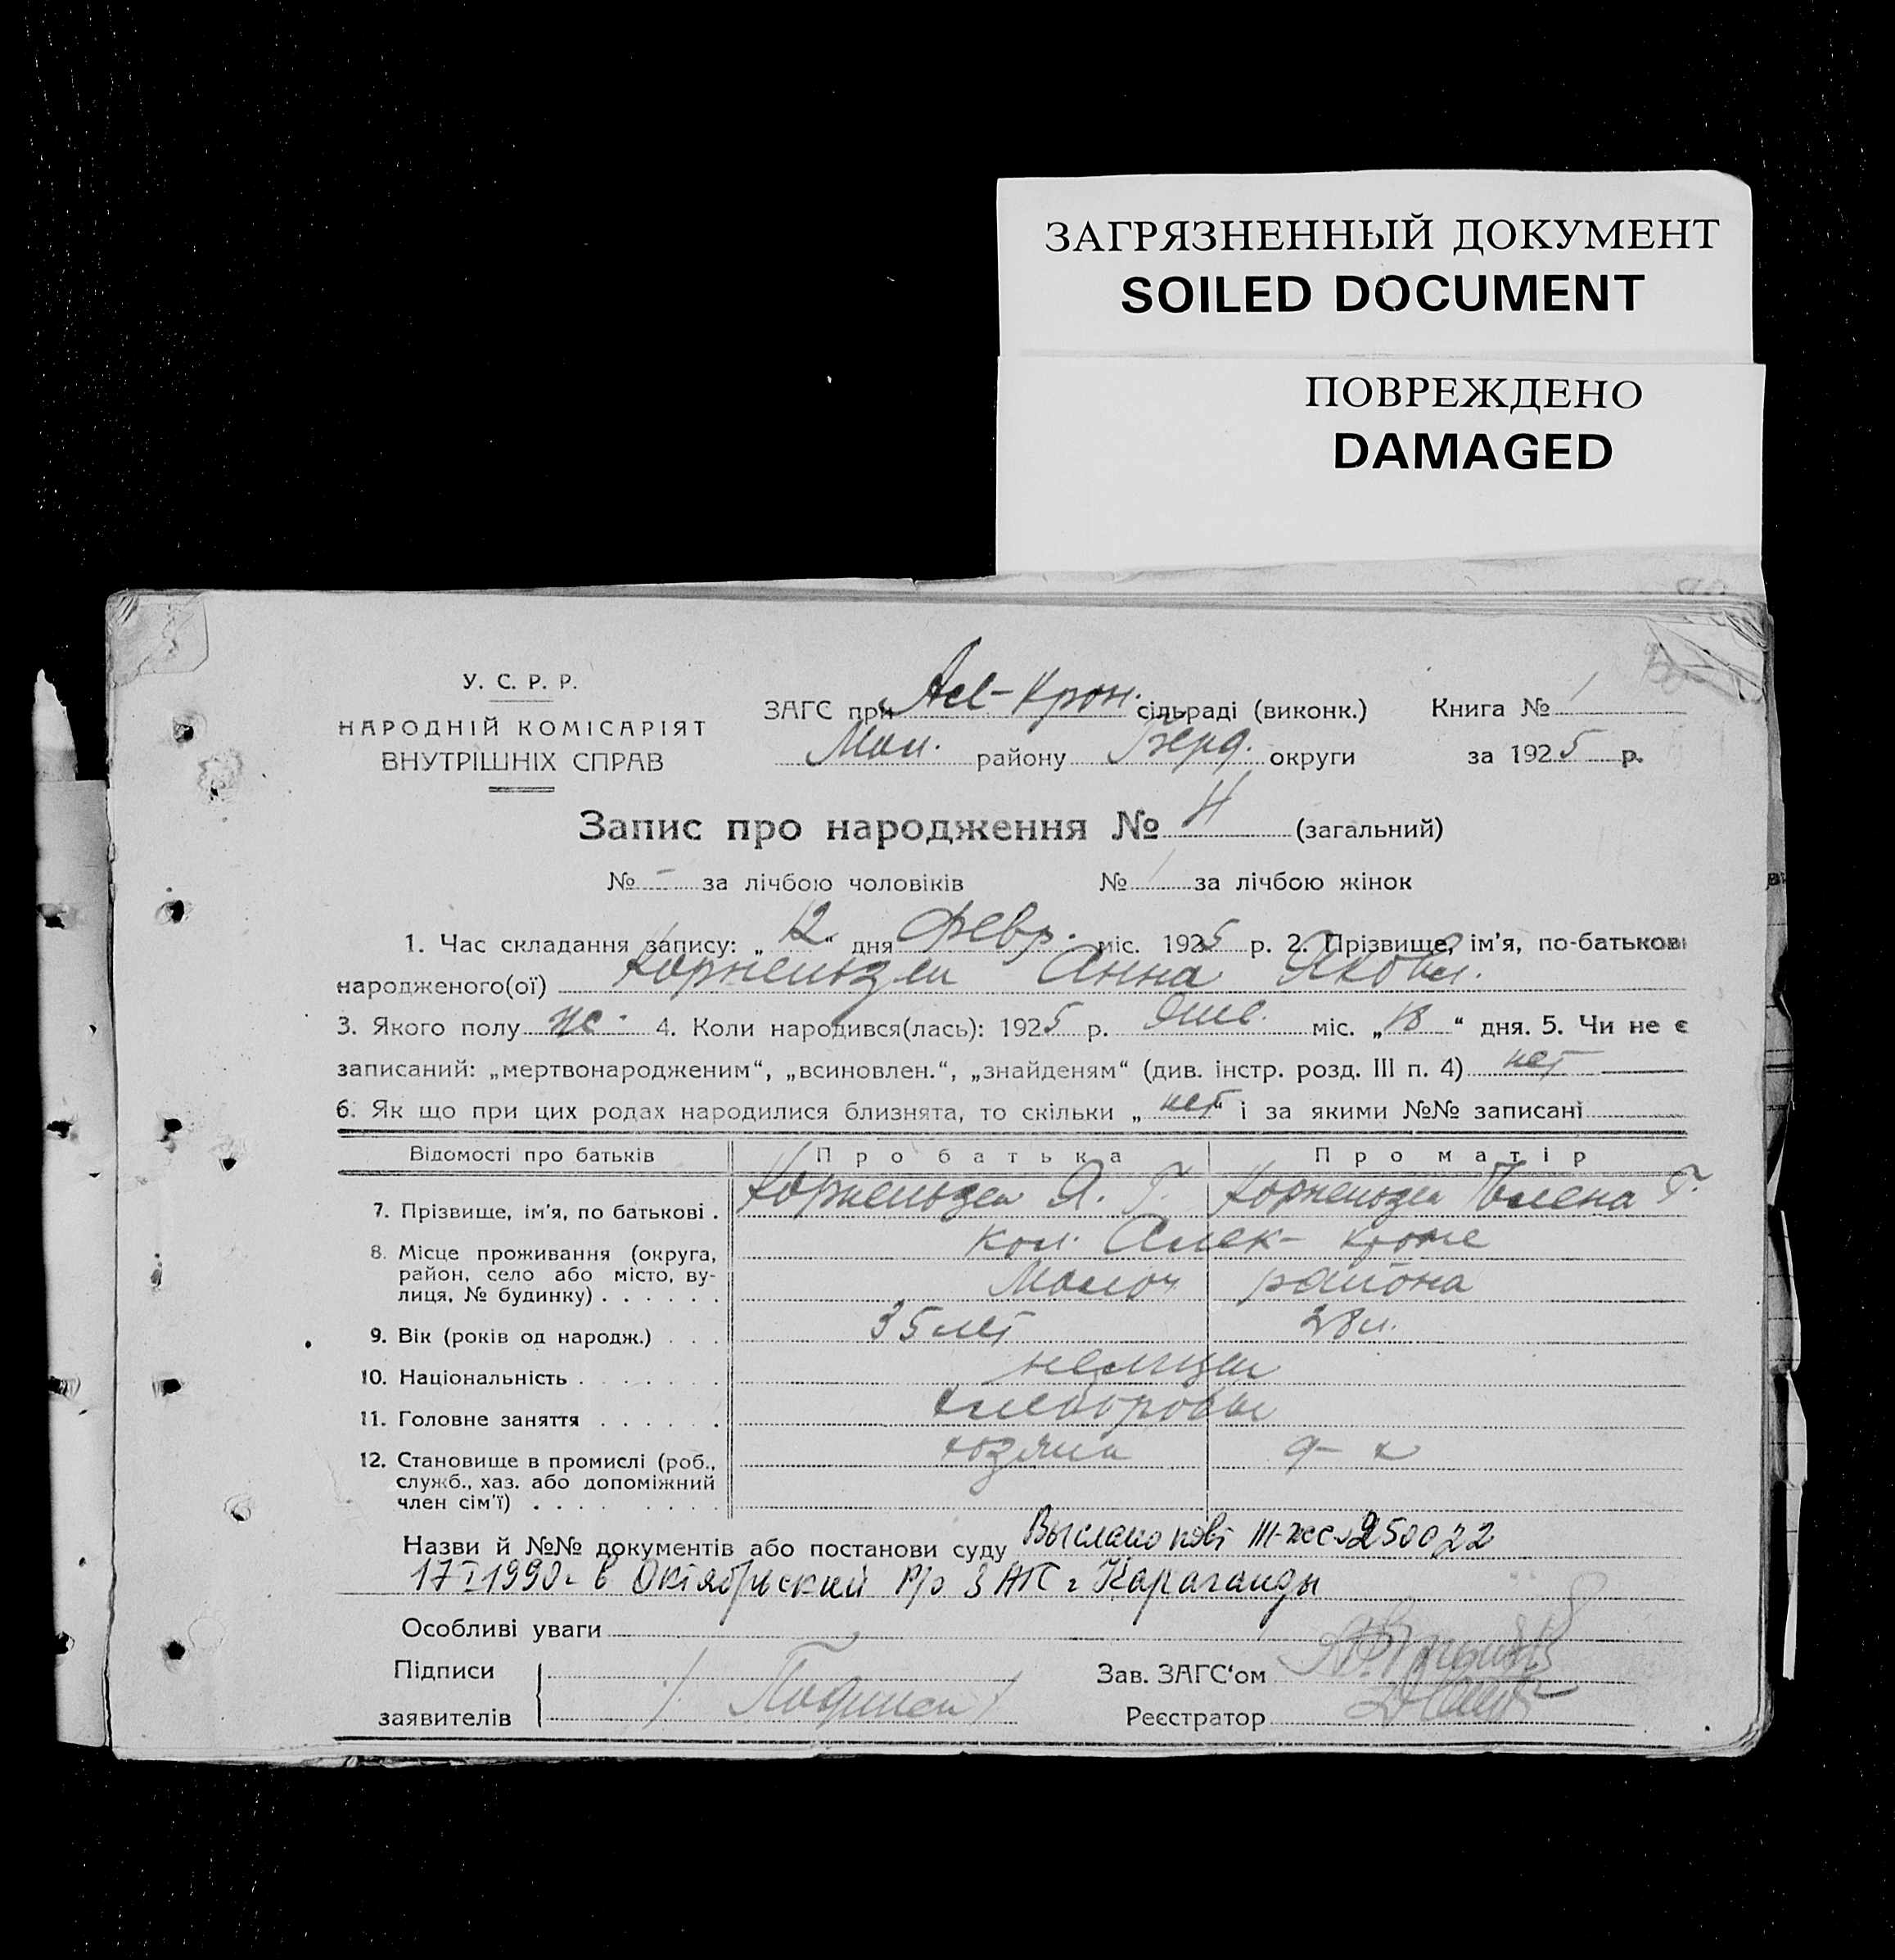 ЗАГРЯЗНЕННЫЙ ДОКУМЕНТ
SOILED DOCUMENT
ПОВРЕЖДЕНО
DAMAGED
У. С. Р. Р.
НАРОДНІЙ КОМІСАРІЯТ
ВНУТРІШНІХ СПРАВ
ЗАГС при Ал-Крон. сільраді (виконк.) Книга № 1
Мол. району Берд. округи за 1925 р.
Запис про народження № 4 (загальний)
№ - за лічбою чоловіків № 1 за лічбою жінок
1. Час складання запису: „ 12 “ дня Февр. міс. 1925 р. 2. Прізвище, ім'я, по-батькові
народженого(ої) Корнельзен Анна Яковл.
3. Якого полу ж. 4. Коли народився(лась): 1925 р. Янв. міс. „ 18 “ дня. 5. Чи не є
записаний: „мертвонародженим“, „всиновлен.“, „знайденям“ (див. інстр. розд. III п. 4) нет
6. Як що при цих родах народилися близнята, то скільки „ нет “ і за якими №№ записані
Відомості про батьків Про батька Про матір
7. Прізвище, ім'я, по батькові . Корнельзен Я. Г. Корнельзен Елена Г.
8. Місце проживання (округа, кол. Алек- кроне
район, село або місто, ву- Молоч района
лиця, № будинку) . . . . . .
9. Вік (років од народж.) . . . 35 лет 28 л.
10. Національність . . . . . . . немцы
11. Головне заняття . . . . . . хлеборобы
12. Становище в промислі (роб., хозяин д- х
служб., хаз. або допоміжний
член сім'ї) . . . . . . . .
Назви й №№ документів або постанови суду Выслано повт III-жс № 250022
17 I 1990г в Октябрьский р/о ЗАГС г Караганды
Особливі уваги
Підписи
заявителів / Подписи /
Зав. ЗАГС'ом
Реєстратор